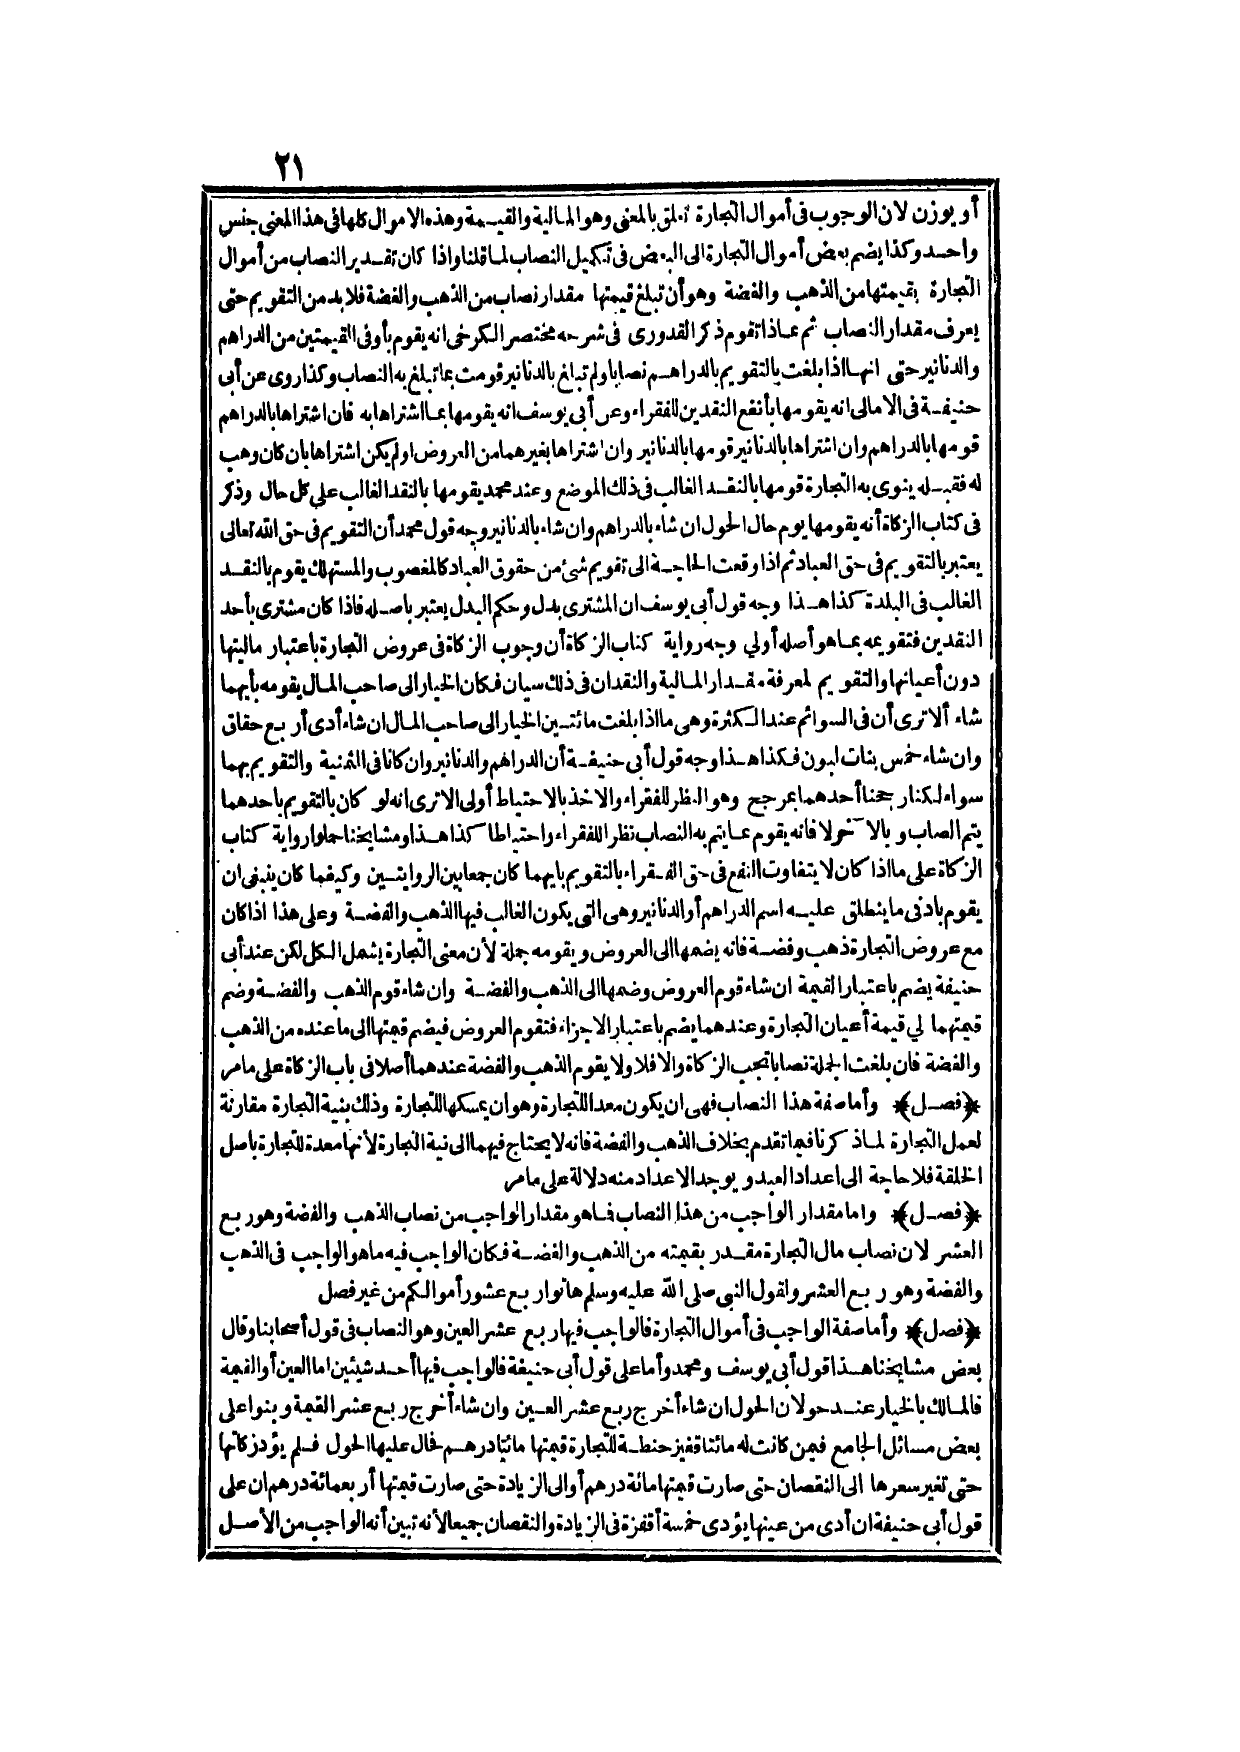 ٢١
أو يوزن لان الوجوب فى أموال التجارة تعلق بالمعنى وهو المالية والقيمة وهذه الاموال كلها فى هذا المعنى جنس
واحد وكذا يضم بعض أموال التجارة الى البعض فى تكميل النصاب لما قلنا واذا كان تقدير النصاب من أموال
التجارة بقيمتها من الذهب والفضة وهو أن تبلغ قيمتها مقدار نصاب من الذهب والفضة فلا بد من التقويم حتى
يعرف مقدار النصاب ثم بماذا تقوم ذكر القدورى فى شرحه مختصر الكرخى انه يقوم بأوفى القيمتين من الدراهم
والدنانير حتى انها اذا بلغت بالتقويم بالدراهم نصابا ولم تبلغ بالدنانير قومت بما تبلغ به النصاب وكذا روى عن أبى
حنيفة فى الامالى انه يقومها بأنفع النقدين للفقراء وعن أبى يوسف انه يقومها بما اشتراها به فان اشتراها بالدراهم
قومها بالدراهم وان اشتراها بالدنانير قومها بالدنانير وان اشتراها بغيرهما من العروض اولم يكن اشتراها بان كان وهب
له فقبله ينوى به التجارة قومها بالنقد الغالب فى ذلك الموضع وعند محمد يقومها بالنقد الغالب على كل حال وذكر
فى كتاب الزكاة أنه يقومها يوم حال الحول ان شاء بالدراهم وان شاء بالدنانير وجه قول محمد أن التقويم فى حق الله تعالى
يعتبر بالتقويم فى حق العباد ثم اذا وقعت الحاجة الى تقويم شئ من حقوق العباد كالمغصوب والمستهلك يقوم بالنقد
الغالب فى البلدة كذا هذا وجه قول أبى يوسف ان المشترى بدل وحكم البدل يعتبر باصله فاذا كان مشترى بأحد
النقدين فتقويمه بما هو أصله أولى وجه رواية كتاب الزكاة أن وجوب الزكاة فى عروض التجارة باعتبار ماليتها
دون أعيانها والتقويم لمعرفة مقدار المالية والنقدان فى ذلك سيان فكان الخيار الى صاحب المال يقومه بأيهما
شاء ألا ترى أن فى السوائم عند الكثرة وهى ما اذا بلغت مائتين الخيار الى صاحب المال ان شاء أدى أربع حقاق
وان شاء خمس بنات لبون فكذا هذا وجه قول أبى حنيفة أن الدراهم والدنانير وان كانا فى الثمنية والتقويم بهما
سواء لكنا رجحنا أحدهما بمرجح وهو النظر للفقراء والاخذ بالاحتياط أولى الا ترى انه لو كان بالتقويم باحدهما
يتم النصاب وبالآخر لا فانه يقوم بما يتم به النصاب نظرا للفقراء واحتياطا كذا هذا ومشايخنا حملوا رواية كتاب
الزكاة على ما اذا كان لا يتفاوت النفع فى حق الفقراء بالتقويم بايهما كان جمعا بين الروايتين وكيفما كان ينبغى ان
يقوم بادنى ما ينطلق عليه اسم الدراهم أو الدنانير وهى التى يكون الغالب فيها الذهب والفضة وعلى هذا اذا كان
مع عروض التجارة ذهب وفضة فانه يضمها الى العروض ويقومه جملة لأن معنى التجارة يشمل الكل لكن عند أبى
حنيفة يضم باعتبار القيمة ان شاء قوم العروض وضمها الى الذهب والفضة وان شاء قوم الذهب والفضة وضم
قيمتهما لى قيمة أعيان التجارة وعندهما يضم باعتبار الاجزاء فتقوم العروض فيضم قيمتها الى ما عنده من الذهب
والفضة فان بلغت الجملة نصابا تجب الزكاة والا فلا ولا يقوم الذهب والفضة عندهما أصلا فى باب الزكاة على ما مر
﴿فصل﴾ وأما صفة هذا النصاب فهى ان يكون معدا للتجارة وهو ان يمسكها للتجارة وذلك بنية التجارة مقارنة
لعمل التجارة لما ذكرنا فيما تقدم بخلاف الذهب والفضة فانه لا يحتاج فيهما الى نية التجارة لأنها معدة للتجارة باصل
الخلقة فلا حاجة الى اعداد العبد ويوجد الاعداد منه دلالة على ما مر
﴿فصل﴾ واما مقدار الواجب من هذا النصاب فما هو مقدار الواجب من نصاب الذهب والفضة وهو ربع
العشر لان نصاب مال التجارة مقدر بقيمته من الذهب والفضة فكان الواجب فيه ما هو الواجب فى الذهب
والفضة وهو ربع العشر ولقول النبى صلى الله عليه وسلم هاتوا ربع عشور أموالكم من غير فصل
﴿فصل﴾ وأما صفة الواجب فى أموال التجارة فالواجب فيها ربع عشر العين وهو النصاب فى قول أصحابنا وقال
بعض مشايخنا هذا قول أبى يوسف ومحمد وأما على قول أبى حنيفة فالواجب فيها أحد شيئين اما العين أو القيمة
فالمالك بالخيار عند حولان الحول ان شاء أخرج ربع عشر العين وان شاء أخرج ربع عشر القيمة وبنوا على
بعض مسائل الجامع فيمن كانت له مائتا قفيز حنطة للتجارة قيمتها مائتا درهم فحال عليها الحول فلم يؤد زكاتها
حتى تغير سعرها الى النقصان حتى صارت قيمتها مائة درهم أو الى الزيادة حتى صارت قيمتها أربعمائة درهم ان على
قول أبى حنيفة ان أدى من عينها يؤدى خمسة أقفزة فى الزيادة والنقصان جميعا لأنه تبين أنه الواجب من الأصل